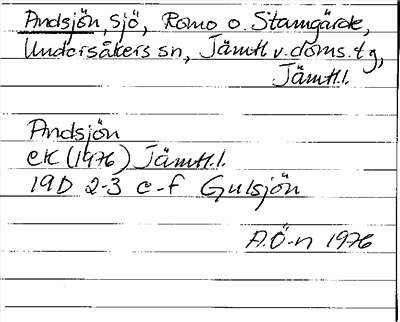 Andsjön, sjö, Romo o. Stamgärde,
Undersåkers sn, Jämtl v. doms. tg,
Jämtl.l.
Andsjön
ek (1976) Jämtl.l.
19D 2-3 e-f Gulsjön
A.Ö-n 1976